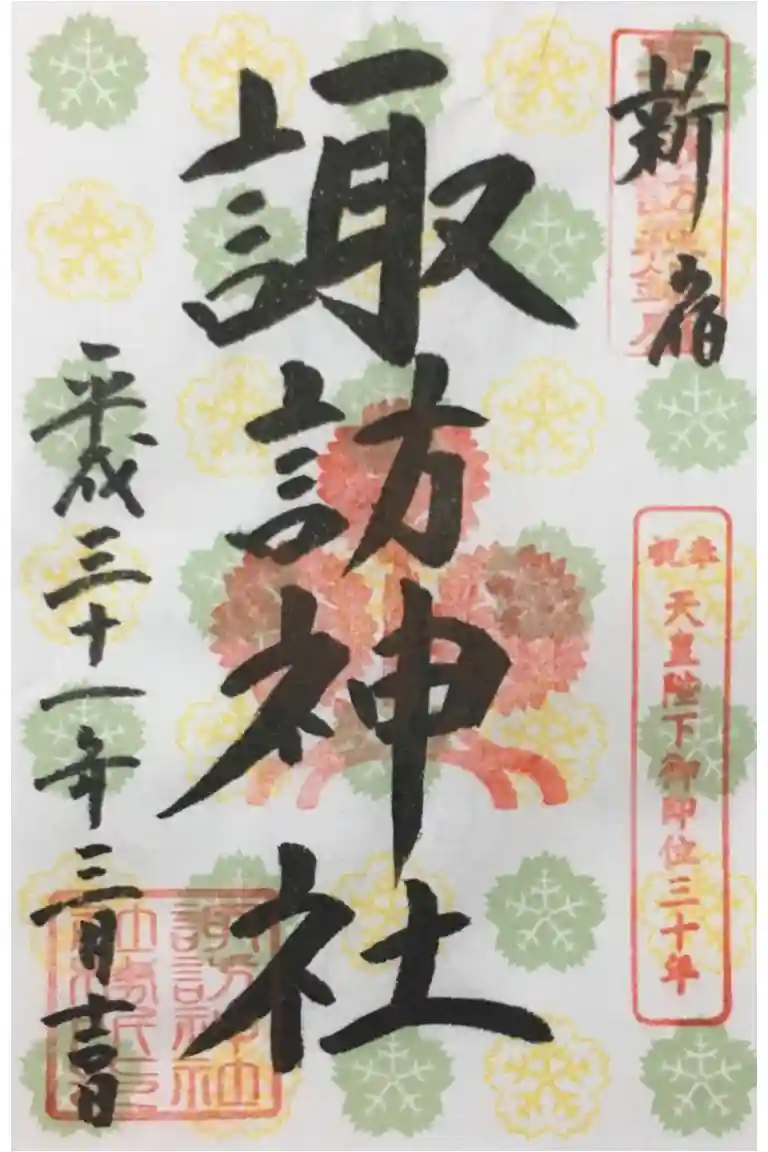 新宿
奉祝
天皇陛下御即位三十年
諏訪神社
平成三十一年三月吉日
諏訪神社